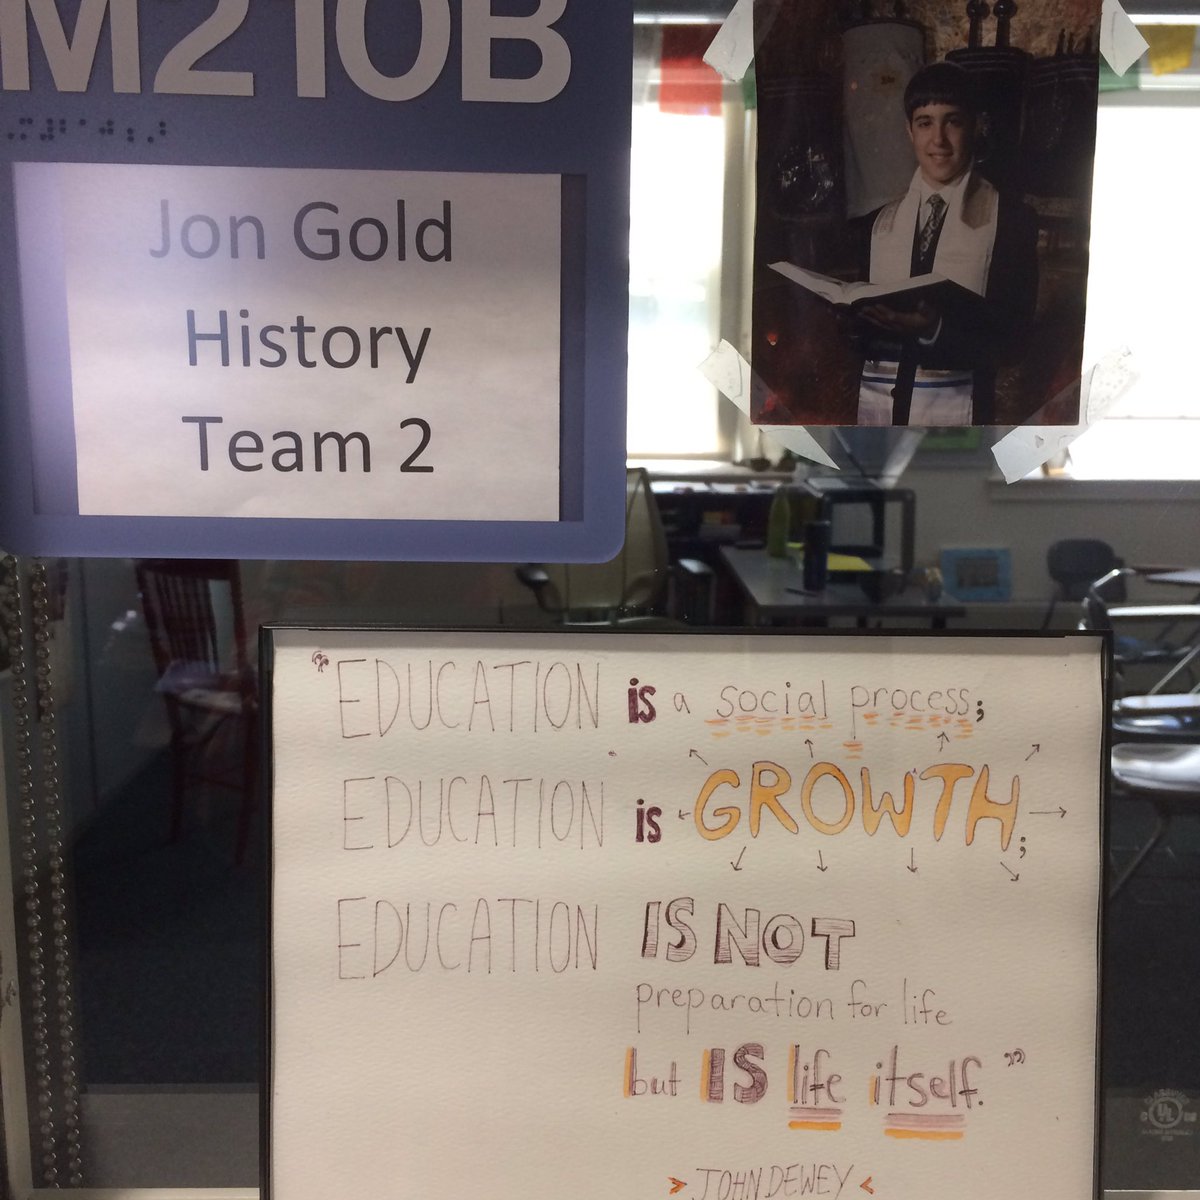 M210B
Jon Gold
History
Team 2
"EDUCATION is a social process;
EDUCATION is GROWTH;
EDUCATION IS NOT
preparation for life
but IS life itself."
> JOHN DEWEY <